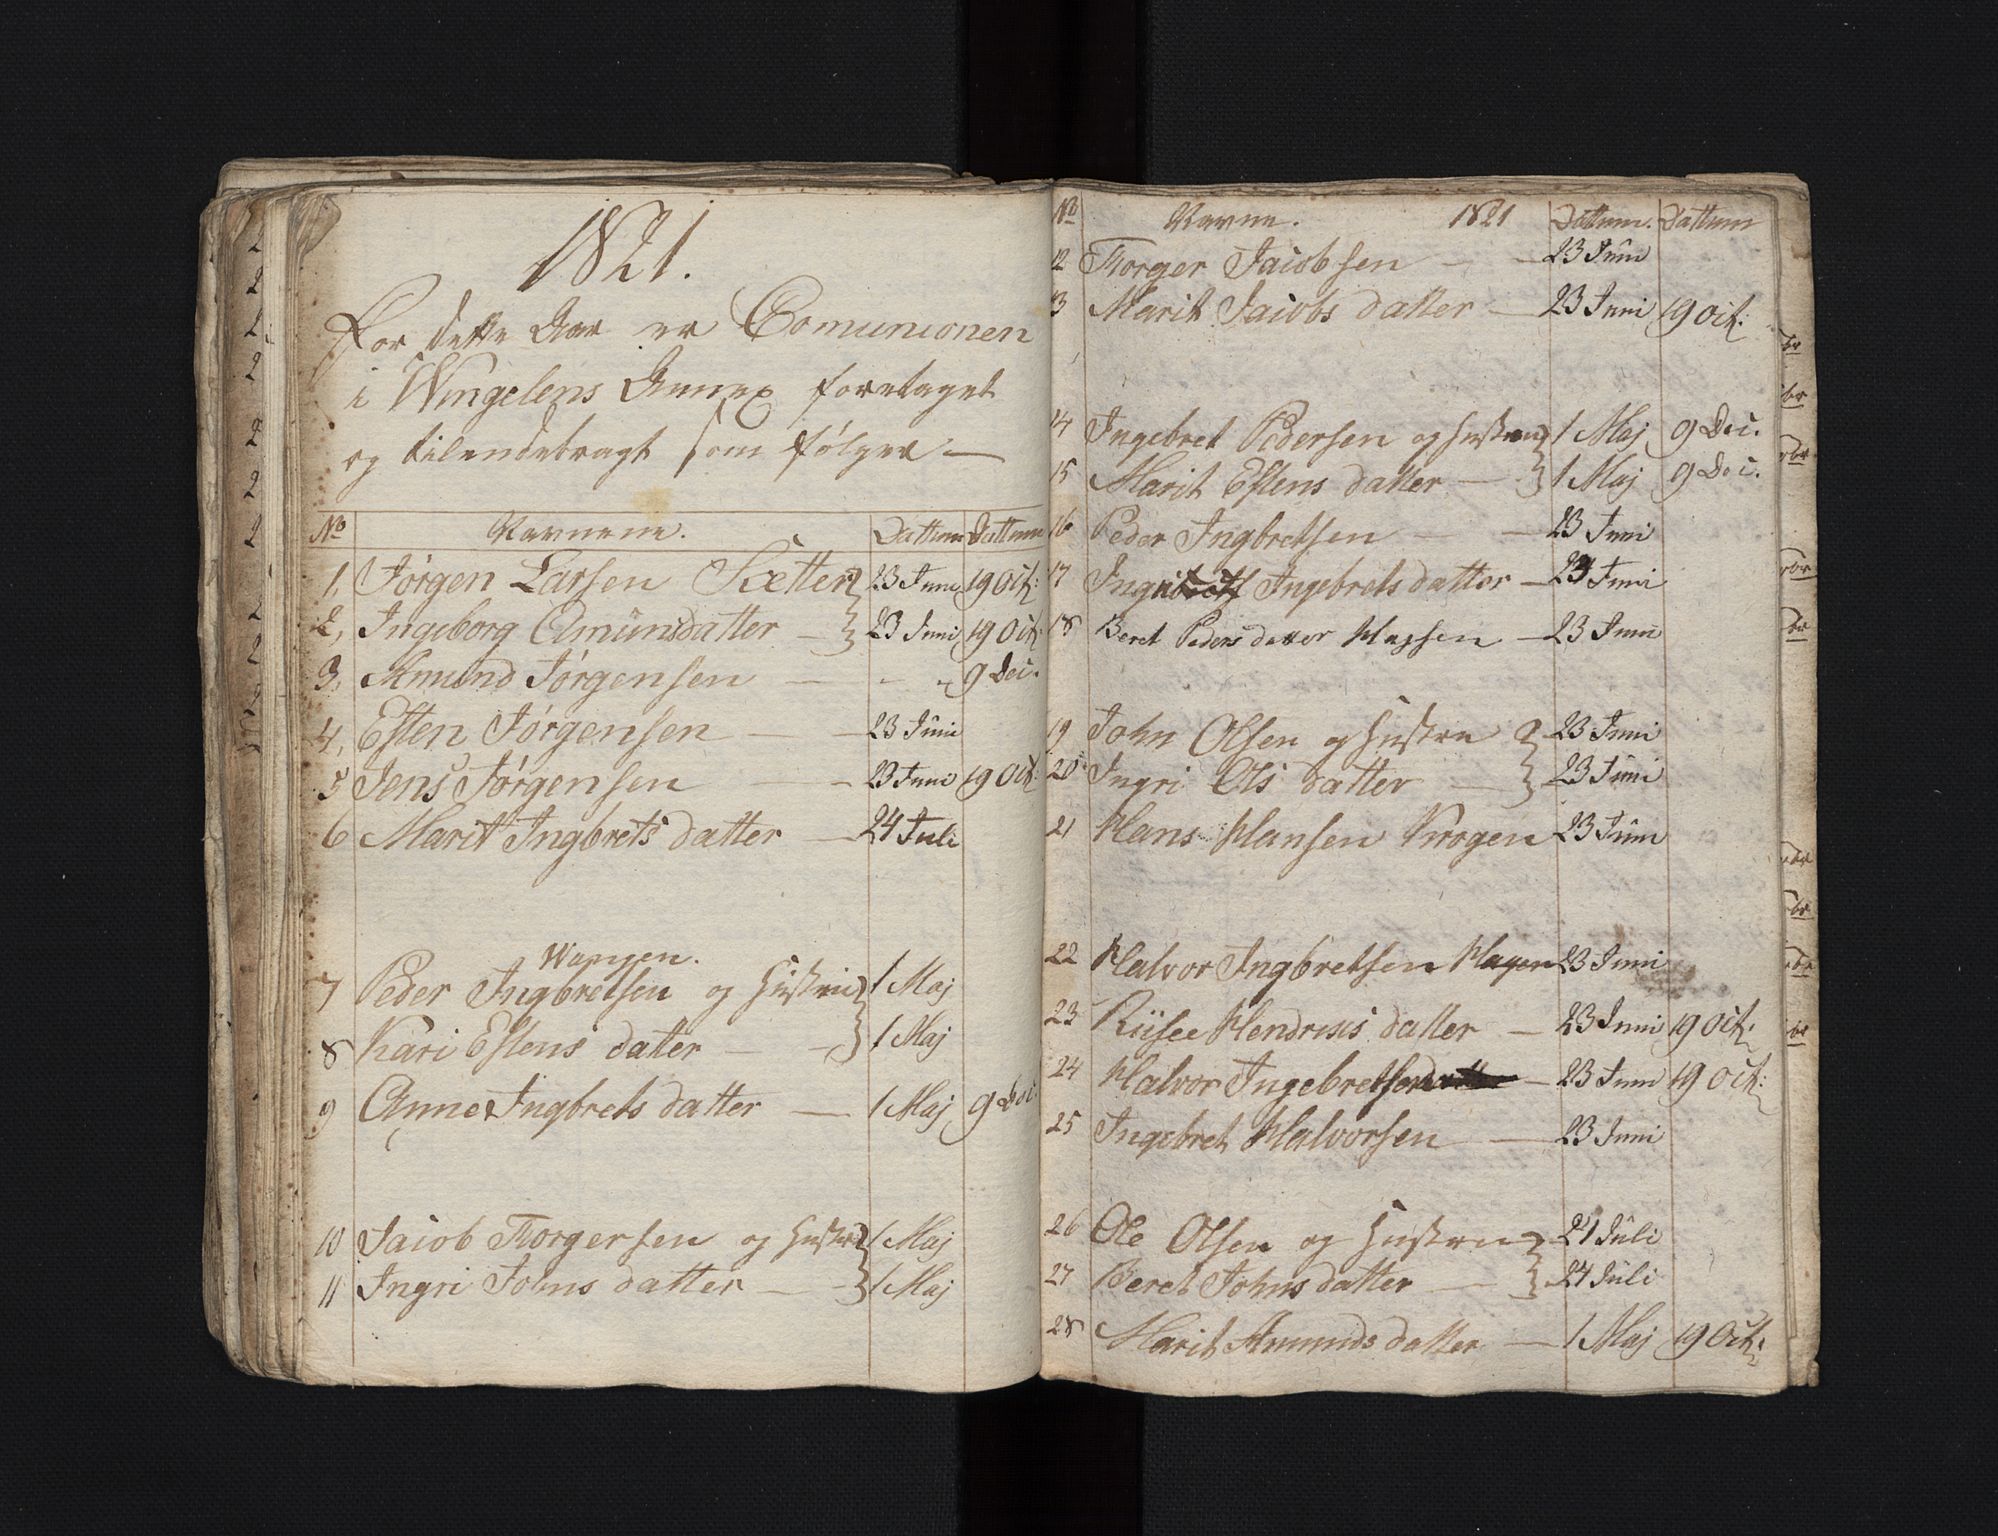 1821.
For dette Aar er Comunionen
i Wingelens Annex foretaget
og tilendebragt som følger —
No Navnene. Dattum Dattum
1, Jørgen Larsen Sætter 23 Juni 19 Oct:
2, Ingeborg Amünsdatter — 23 Juni 19 Oct:
3, Amund Jørgensen — - - 9 Dec.
4, Esten Jørgensen — — 23 Júni
5 Jens Jørgensen — - 23 Juni 19 Oct:
6 Marit Ingbrets datter — 24 Juli
Wangen.
7 Peder Ingbretsen og Hustrue 1 Maj
8 Kari Estens datter — - 1 Maj
9 Anne Ingbrets datter — 1 Maj 9 Dec:
10 Jacob Torgersen og Hustrue 1 Maj
11 Ingri Johns datter — - 1 Maj
No Navne. 1821 Dattum. Dattum
12 Torger Jacobsen — — 23 Júni
13 Marit Jacobs datter — 23 Juni 19 Oct:
14 Ingebret Pedersen og Hustrue 1 Maj 9 Dec.
15 Marit Estens datter — - 1 Maj 9 Dec.
16 Peder Ingbretsen — — 23 Juni
17 Ingri Ingebrets datter — 23 Juni
18 Beret Peders datter Hagsen — 23 Juni
19 John Olsen og Hustrue 23 Juni
20 Ingri Ols datter — 23 Juni
21 Hans Hansen Krogen 23 Júni
22 Halvor Ingbretsen Hagen 23 Juni
23 Hendrics datter — 23 Juni 19 Oct.
24 Halvor Ingebretsen — 23 Juni 19 Oct:
25 Ingebret Halvorsen — 23 Juni
26 Ole Olsen og Hustrue 24 Júli
27 Beret Johns datter — 24 Júli
28 Marit Amunds datter — 1 Maj 19 Oct: